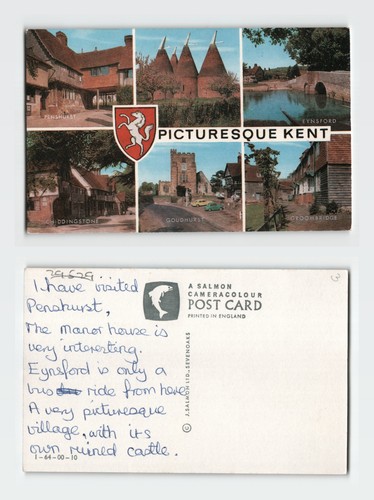 PENSHURST
EYNSFORD
PICTURESQUE KENT
CHIDDINGSTONE
GOUDHURST
GROOMBRIDGE
I have visited
Penshurst,
The Manor house is
very interesting.
Eynsford is only a
bus ride from here
A very picturesque
village, with its
own ruined castle.
1-64-00-10
A SALMON
CAMERACOLOUR
POST CARD
PRINTED IN ENGLAND
© J. SALMON LTD., SEVENOAKS